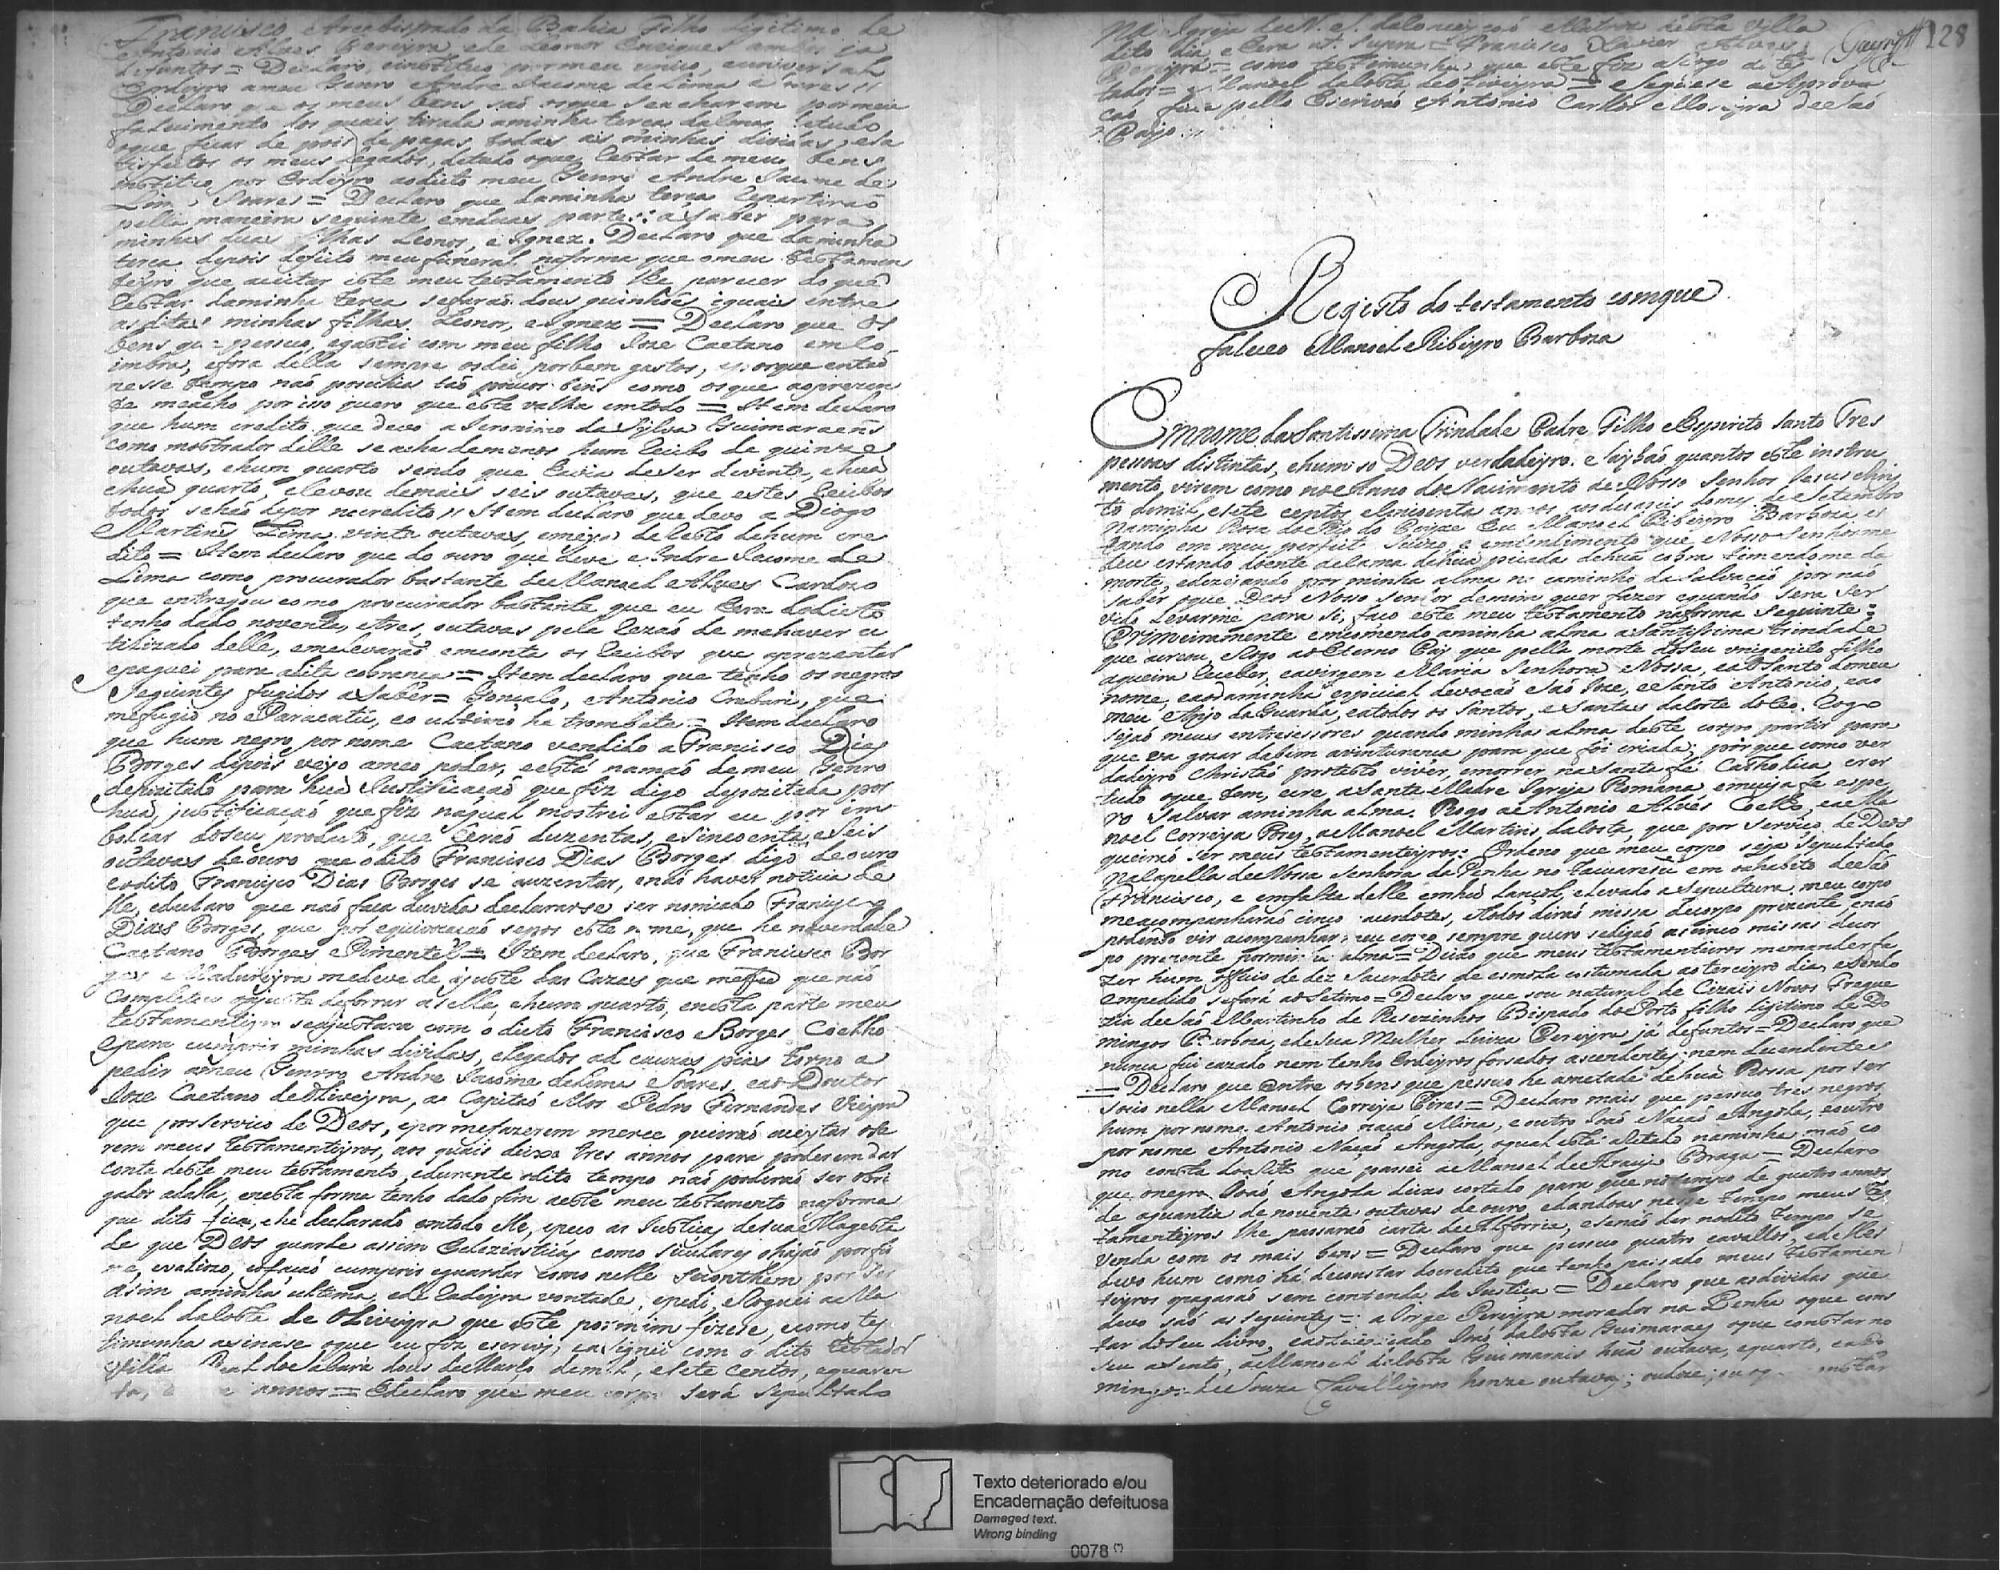 Francisco e Arcebispado da Bahia Filho ligitimo de
Antonio Alves Pereyra, e de Leonor Enriques ambos ja
defuntos = Declaro, e instituo por meu unico, e universal
Erdeyro ameu Genro Andre Jacome de Lima e Soares //
Declaro que os meus bens saõ os que se acharem por meu
faleuimento dos quais tirada aminha terca dalma, e tudo
oque ficar de pois de pagas todas as minhas dividas, e sa
tisfeitos os meus legados, detudo oque restar de meus bens
instituo por Erdeyro aodito meu Genro Andre Jacome de
Lima Soares = Declaro que daminha terca repartiraõ
pella maneira seguinte emduas partes: a saber para
minhas duas filhas Leonor, e Ignez. Declaro que daminha
terca depois defeito meu funeral naforma que omeu testamen
teyro que aceitar este meu testamento lhe parecer do que
restar daminha terca se faraõ dous quinhoes iguais entre
as ditas minhas filhas Leonor, e Ignez = Declaro que os
bens que pessuo, egastei com meu filho Joze Caetano em Co
imbra, e fora della sempre os dei por bem gastos, e porque entaõ
nesse tempo naõ pessuhia taõ poucos bens como os que aoprezen
te meacho por isso quero que este valha emtodo = Item declaro
que hum credito que devo a Jeronimo da Sylva Guimaraens
como mostrador delle se acha demenos hum recibo de quinze
outavas, e hum quarto sendo que devia de ser de vinte, e hua
e hua quarto, e levou demais seis outavas, que estes recibos
todos se haõ de por no credito // Item declaro que devo a Diogo
Martins Lima vinte outavas, emeya de resto dehum cre
dito = Item declaro que do ouro que deve Andre Jacome de
Lima como procurador bastante de Manoel Alves Cardozo
que entregou como procurador bastante que eu era dodito
tenho dado noventa, e tres, outavas pela rezaõ de mehaver u
tilizado delle, emelevaraõ emconta os recibos que aprezentar
epaguei para adita cobrança = Item declaro que tenho os negros
seguintes fugidos a saber = Gonçalo, Antonio Crabari, que
mefugio no Paracatú, eo ultimo he trombeta = Item declaro
que hum negro por nome Caetano vendido a Francisco Dias
Borges depois veyo ameo poder, eestá namaõ de meu Genro
depozitado para hua Justificaçaõ que fiz digo depozitada por
hua justificaçaõ que fiz naqual mostrei estar eu por im
bolçar doseu producto, que seraõ duzentas, e sincoenta, e seis
outavas de ouro que odito Francisco Dias Borges digo de ouro
eodito Francisco Dias Borges se auzentar, enaõ haver noticia de
lle, edeclaro que naõ faca duvida declararse ser nomeado Francisco
Dias Borges, que por equivocacaõ sepos este nome, que he na verdade
Caetano Borges Pimentel = Item declaro, que Francisco Bor
ges e Madureyra medeve de ajuste das Cazas que mefes que naõ
completou oajuste deforrar asella, e hum quarto, enesta parte meu
testamenteyro seajustara com o dito Francisco Borges Coelho
epara cumprir minhas dividas, elegados ad cauzas pias torno a
pedir ameu Genrro Andre Jacome de Lima Soares, eao Doutor
Joze Caetano de Oliveyra, ao Capitaõ Mor Pedro Fernandes Vieyra
que por serviço de Deos, epor mefazerem merce queiraõ aceytar o se
rem meus testamenteyros, aos quais deixo tres annos para poderem dar
conta deste meu testamento, edurante odito tempo naõ poderaõ ser obri
gados adalla, enesta forma tenho dado fim aeste meu testamento naforma
que dito fica, ehe declarado emtodo elle, epeco as Justicas desua Magesta
de que Deos guarde assim Ecleziasticas como seculares ohajaõ porfir
me, evalioso, eofaçaõ cumprir eguardar como nelle seconthem por ser
asim aminha ultima, ede radeyra vontade, epedi, eroguei aMa
noel dalosta de Oliveyra que este pormim fizese, ecomo tes
timunha asinase oque eu fiz escrevi; easigney com o dito testador
Villa Real do Sabara dous de Março demil, esete centos, equaren
ta, annos = Edeclaro que meu corpo será sepultado
128
na Igreja de N. S. daloneiçaõ Matriz desta Villa
dito dia e era ut supra = Francisco Xavier Alves
Pereyra = como testimunha que este fiz arogo do tes
tador = Manoel dalosta de Oliveyra = e seguese aAprova
caõ feita pello Escrivaõ Antonio Carllos e Moreyra de Saõ
Payo
Registo do testamento comque
faleceo Manoel Ribeyro Barboza
Emnome da Santissima Trindade Padre Filho e Espirito Santo Tres
pessoas distintas, e hum so Deos verdadeyro. e Saybaõ quantos este instru
mento virem como no Anno do Nacimento de Nosso Senhor Jesus Chris
to demil, e sete centos e sincoenta annos aos dezaseis domes de Setembro
naminha Rosa do Rio do Peixe Eu Manoel Ribeyro Barboza es
tando em meu perfeito Juizo, e entendimento que Nosso Senhor me
deu estando doente decama dehua picada dehua cobra temendome da
morte, edezejando por minha alma no caminho da salvacaõ por naõ
saber oque Deos Nosso Senhor demim quer fazer equando sera ser
vido levarme para si, faco este meu testamento naforma seguinte:
Primeiramente emcomendo aminha alma a Santissima trindade
que acreou, e Rogo ao Eterno Pay que pella morte doseu unigenito filho
aqueira receber, eavirgem Maria Senhora Nossa, eao Santo domeu
nome, eaodaminha especial devocaõ Saõ Joze, e Santo Antonio, eao
meu Anjo da Guarda, eatodos os Santos, e Santas dalorte doCeo. Rogo
sejaõ meus entresessores quando minha alma deste corpo partir para
que va gozar dabem aventurança para que foi criada; porque como ver
dadeyro Christaõ protesto viver, emorrer na Santa fé Catholica crer
tudo oque tem, ecre a Santa Madre Igreja Romana, emcuja fe espe
ro salvar aminha alma. Rogo a Antonio Alves Coelho, eaMa
noel Correya Pires, aManoel Martins dalosta, que por serviço de Deos
queiraõ ser meus testamenteyros: Ordeno que meu corpo seja sepultado
na Capella de Nossa Senhora da Penha no Taucarassu em o habito de Saõ
Francisco, e emfalta delle emhu lançol, elevado a sepultura, meu corpo
meacompanharaõ cinco sacerdotes, etodos diraõ missa decorpo prezente, enaõ
podendo vir acompanhar meu corpo sempre quero sedigaõ as cinco missas decor
po prezente por minha alma = Deixo que meus testamenteiros memandem fa
zer hum officio de dez Sacerdotes de esmola costumada ao terceyro dia, esendo
empedido sefará ao Setimo = Declaro que sou natural de Cizais Novos Fregue
zia de Saõ Martinho de Pesezinhos Bispado do Porto filho ligitimo de Do
mingos Barboza, e desua Mulher Luiza Pereyra já defuntos = Declaro que
nunca fui cazado nem tenho Erdeyros forsados ascendentes, nem decendentes
= Declaro que entre os bens que pessuo he ametade dehuá Rossa por ser
socio nella Manoel Correya Pires = Declaro mais que pessuo tres negros
hum por nome Antonio naçaõ Mina, e outro Joaõ Naçaõ Angola, eoutro
por nome Antonio Naçaõ Angola, oqual está aletado naminha maõ co
mo consta docredito que passei aManoel de Araujo Braga = Declaro
que onegro Joaõ Angola deixo cortado para que no tempo de quatro annos
de aquantia de noventa outavas de ouro, edandoas nesse tempo meus tes
tamenteyros lhe passaraõ carta de Alforria, e senaõ der nodito tempo se
venda com os mais bens = Declaro que pessuo quatro cavallos, edelles
devo hum como há de constar docredito que tenho passado meus testamen
teyros opagaraõ sem contenda de Justiça = Declaro que asdividas que
devo saõ as seguintes = a Jorge Pereyra morador na Penha oque cons
tar doseu livro, Joaõ dalosta Guimaraes oque constar no
seu asento, aManoel dalosta Guimarais huá outava, equarto, eado
mingos de Souza Cavalleyros honze outavas; constar
Texto deteriorado e/ou
Encadernação defeituosa
Damaged text.
Wrong binding
0078 (3)